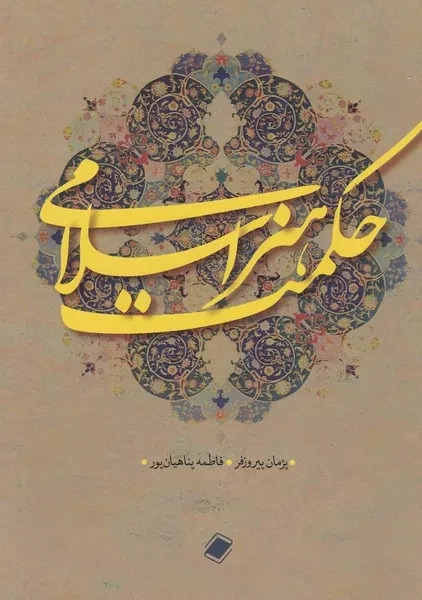 حکمت هنر اسلامی
• پژمان پیروزفر • فاطمه پناهیان‌پور •